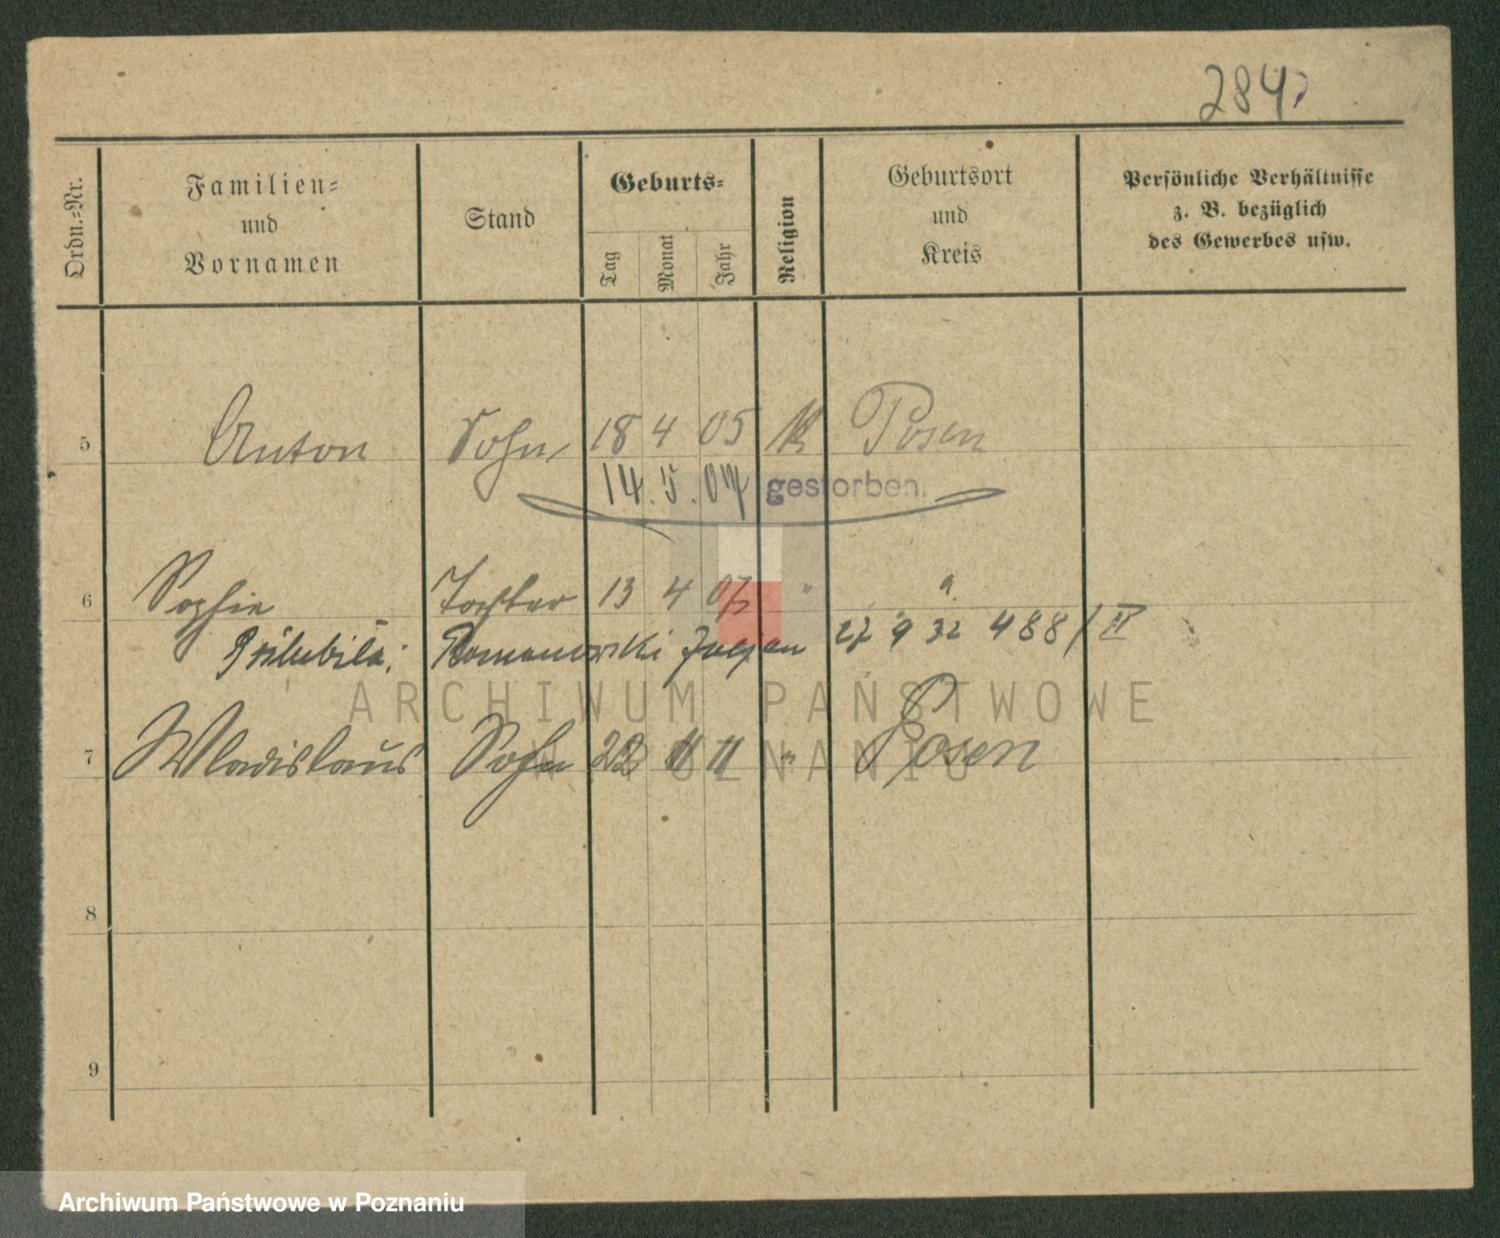 284
Ordn.-Nr.
Familien-
und
Vornamen
Stand
Geburts-
Tag
Monat
Jahr
Religion
Geburtsort
und
Kreis
Persönliche Verhältnisse
z. B. bezüglich
des Gewerbes usw.
5 Anton Sohn 18 4 05 K Posen
14. 5. 07 gestorben.
6 Sophie Tochter 13 4 07 "
Romanowski Julian 27 9 32 488/IV
7 Wladislaus Sohn 22 11 11 " Posen
8
9
ARCHIWUM PAŃSTWOWE
W POZNANIU
Archiwum Państwowe w Poznaniu